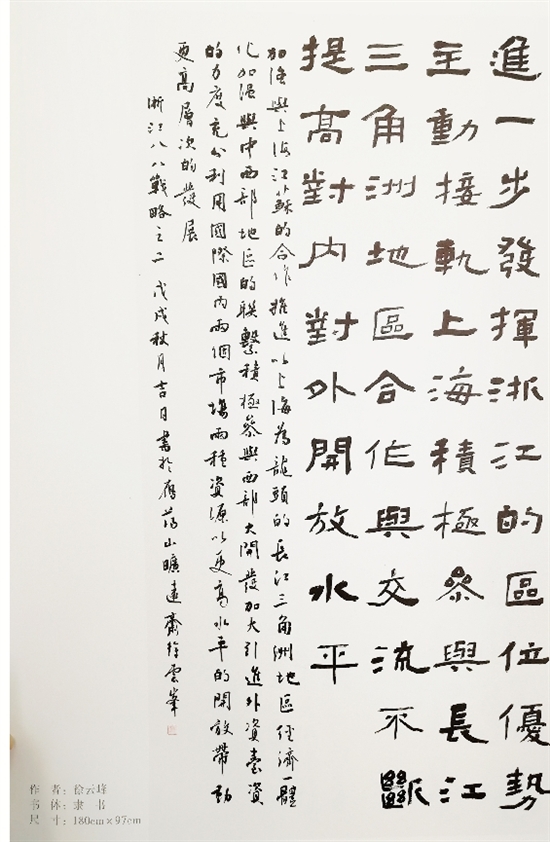 進一步發揮浙江的區位優勢
主動接軌上海積極參與長江
三角洲地區合作與交流不斷
提高對內對外開放水平
加強與上海江蘇的合作推進以上海為龍頭的長江三角洲地區經濟一體
化加强與中西部地區的聯繫積極參與西部大開發加大引進外資臺資
的力度充分利用國際國內兩個市場兩種資源以更高水平的開放帶動
更高層次的發展
浙江八八戰略之二 戊戌秋月吉日書於雁蕩山曠遠齋徐雲峯
作 者：徐云峰
书 体：隶 书
尺 寸：180cm×97cm